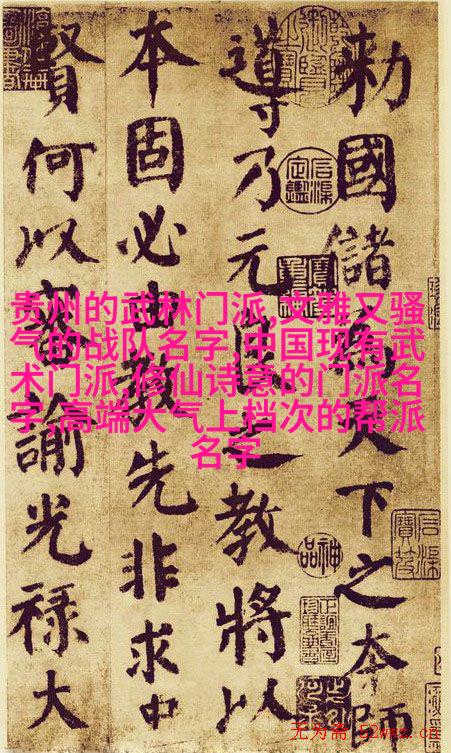 勑國儲為天下之本師
導乃元良之教將以
本固必由教先非求中
賢何以審諭光祿大
贵州的武林门派,文雅又骚
气的战队名字,中国现有武
术门派,修仙诗意的门派名
字,高端大气上档次的帮派
名字
神品
无为斋 52wwz.cn